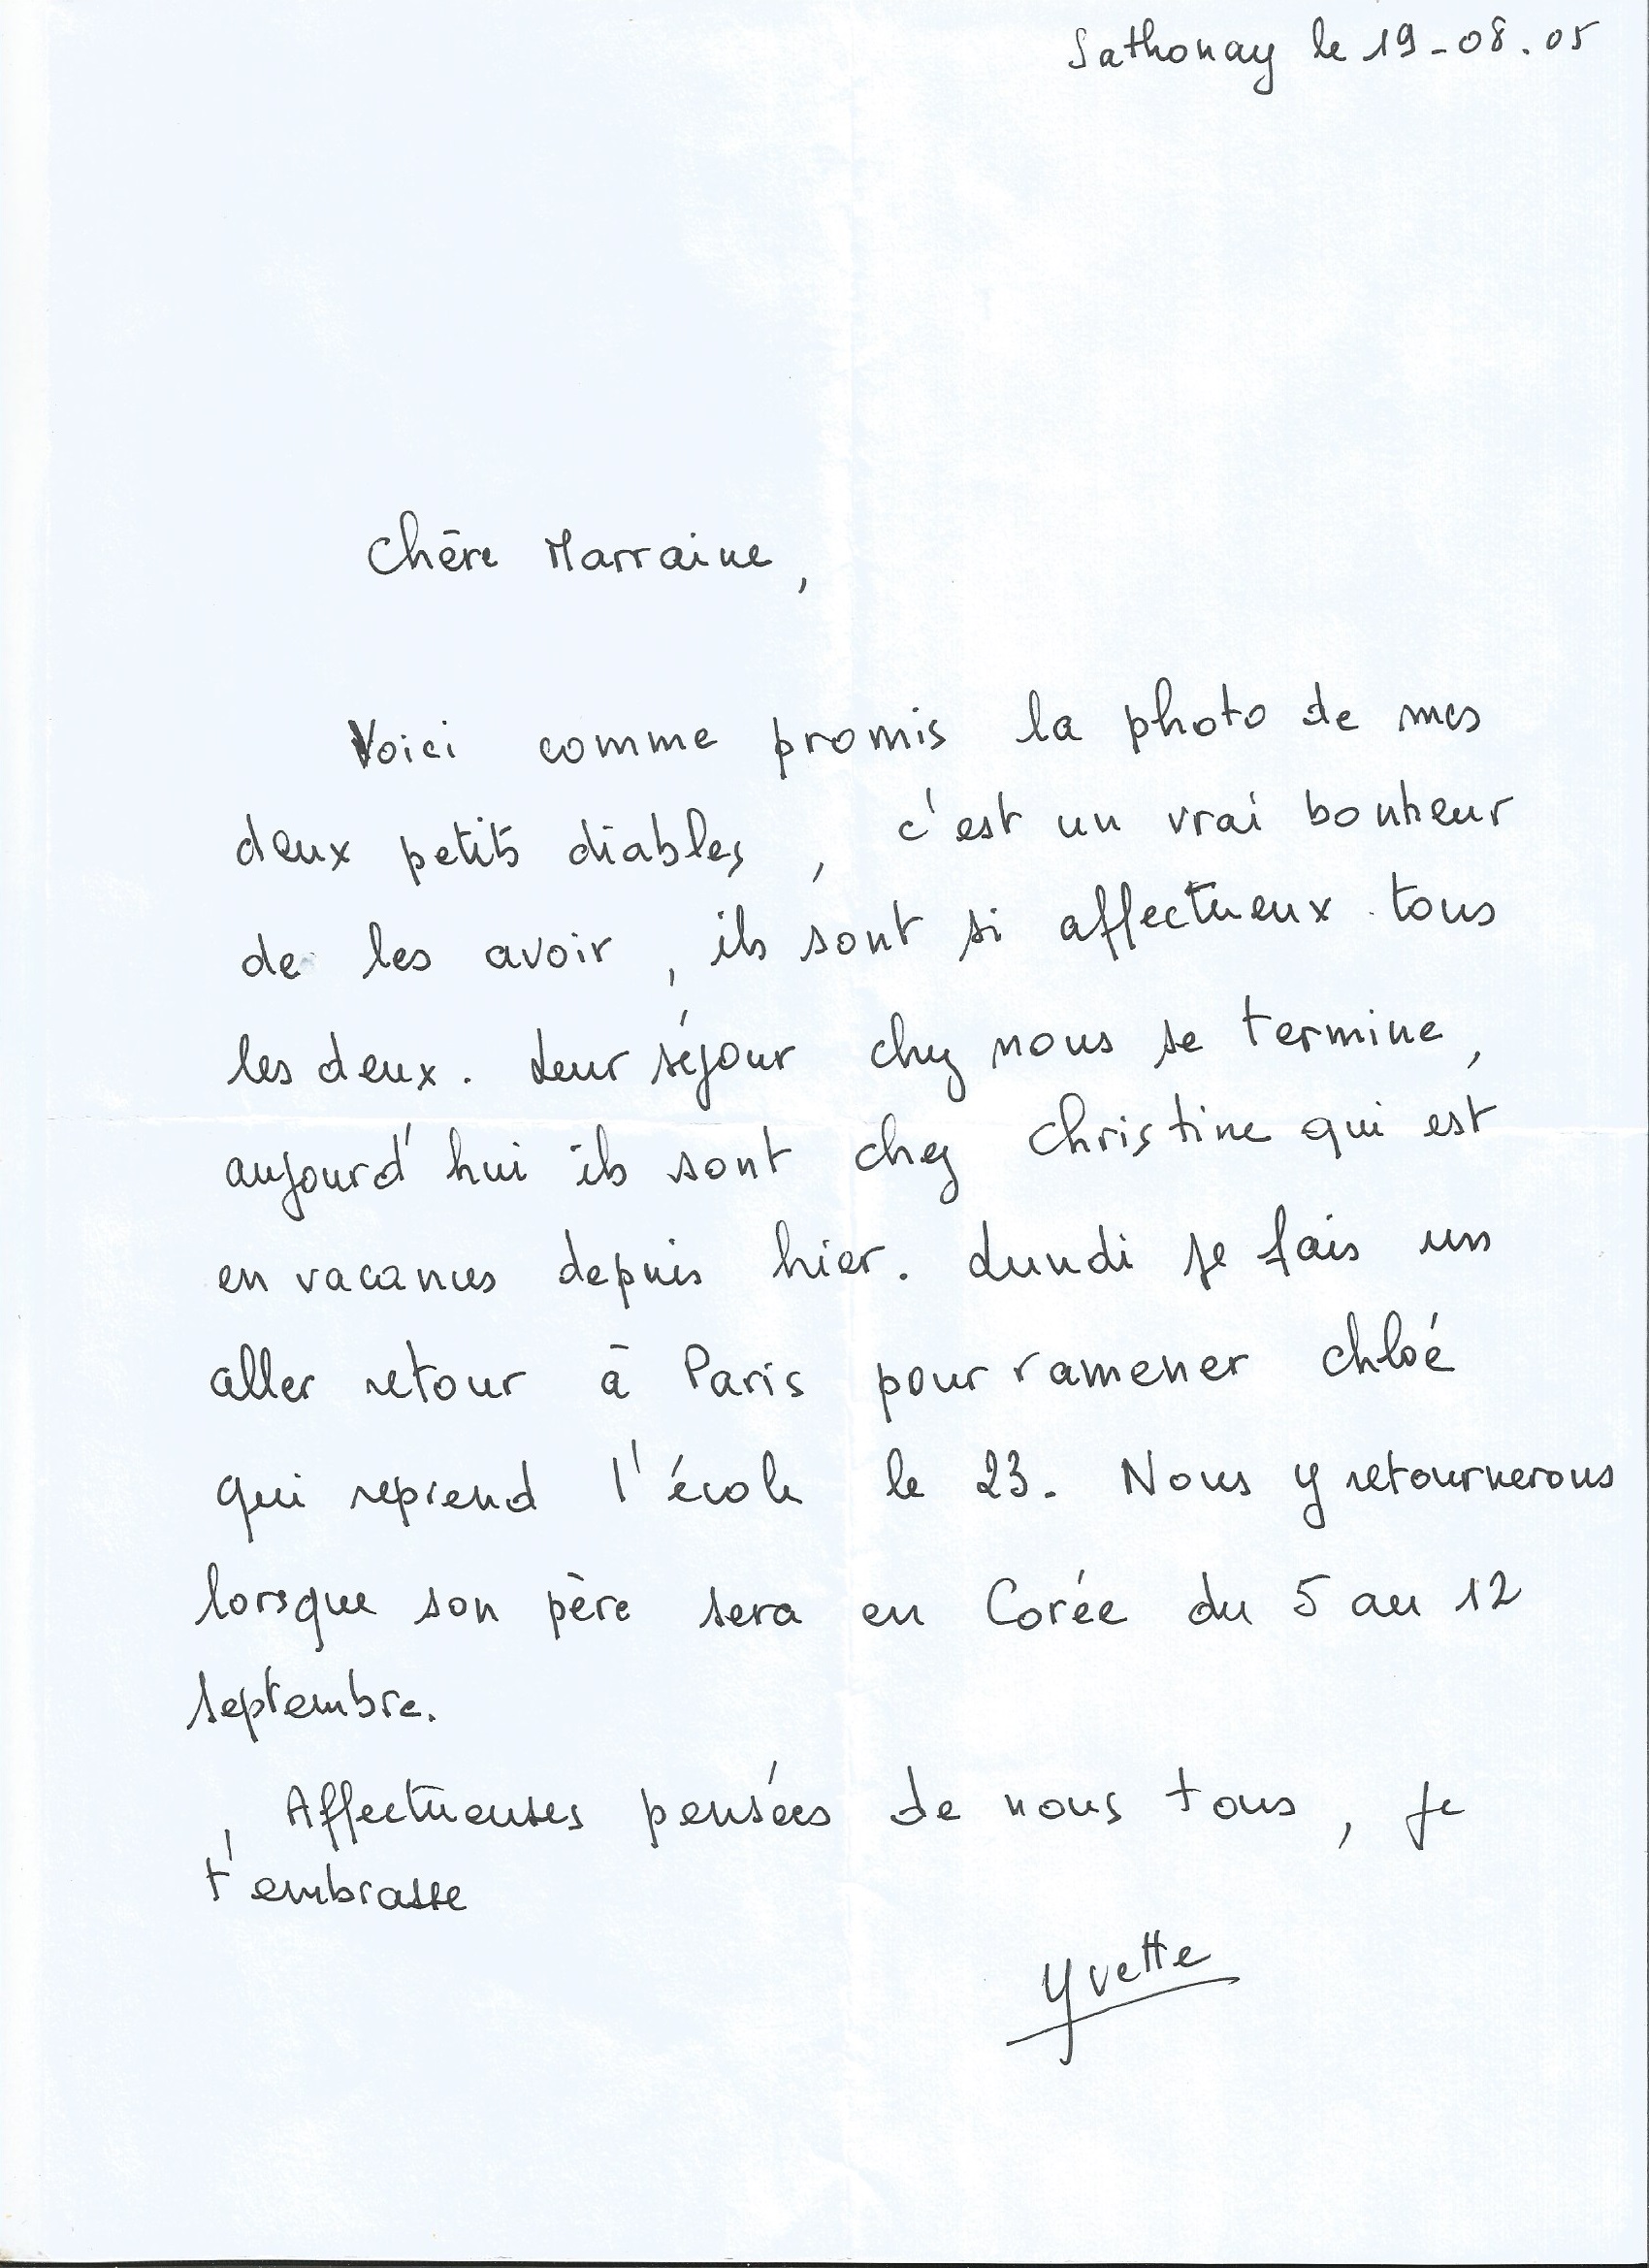 Sathonay le 19-08.05
Chère Marraine,
Voici comme promis la photo de mes
deux petits diables, c'est un vrai bonheur
de les avoir, ils sont si affectueux tous
les deux. Leur séjour chez nous se termine,
aujourd'hui ils sont chez Christine qui est
en vacances depuis hier. Lundi je fais un
aller retour à Paris pour ramener chloé
qui reprend l'école le 23. Nous y retournerons
lorsque son père sera en Corée du 5 au 12
septembre.
Affectueuses pensées de nous tous, je
t'embrasse
Yvette